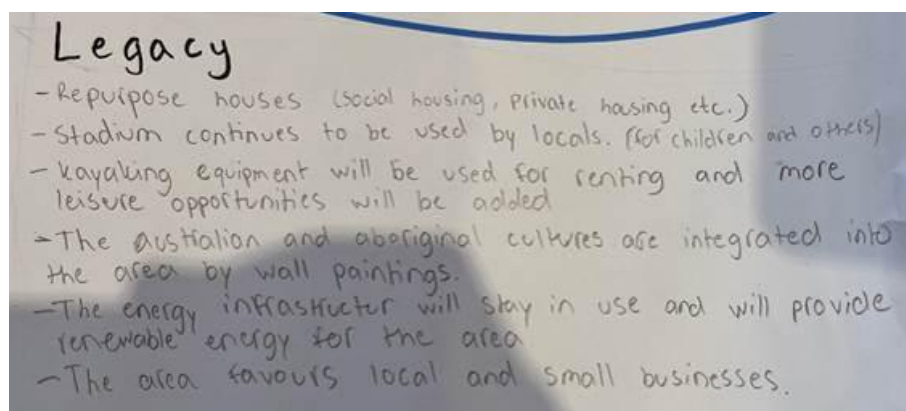 Legacy
- Repurpose houses (social housing, private housing etc.)
- Stadium continues to be used by locals. (for children and others)
- kayaking equipment will be used for renting and more
leisure opportunities will be added
- The australian and aboriginal cultures are integrated into
the area by wall paintings.
- The energy infrastructer will stay in use and will provide
renewable energy for the area
- The area favours local and small businesses.